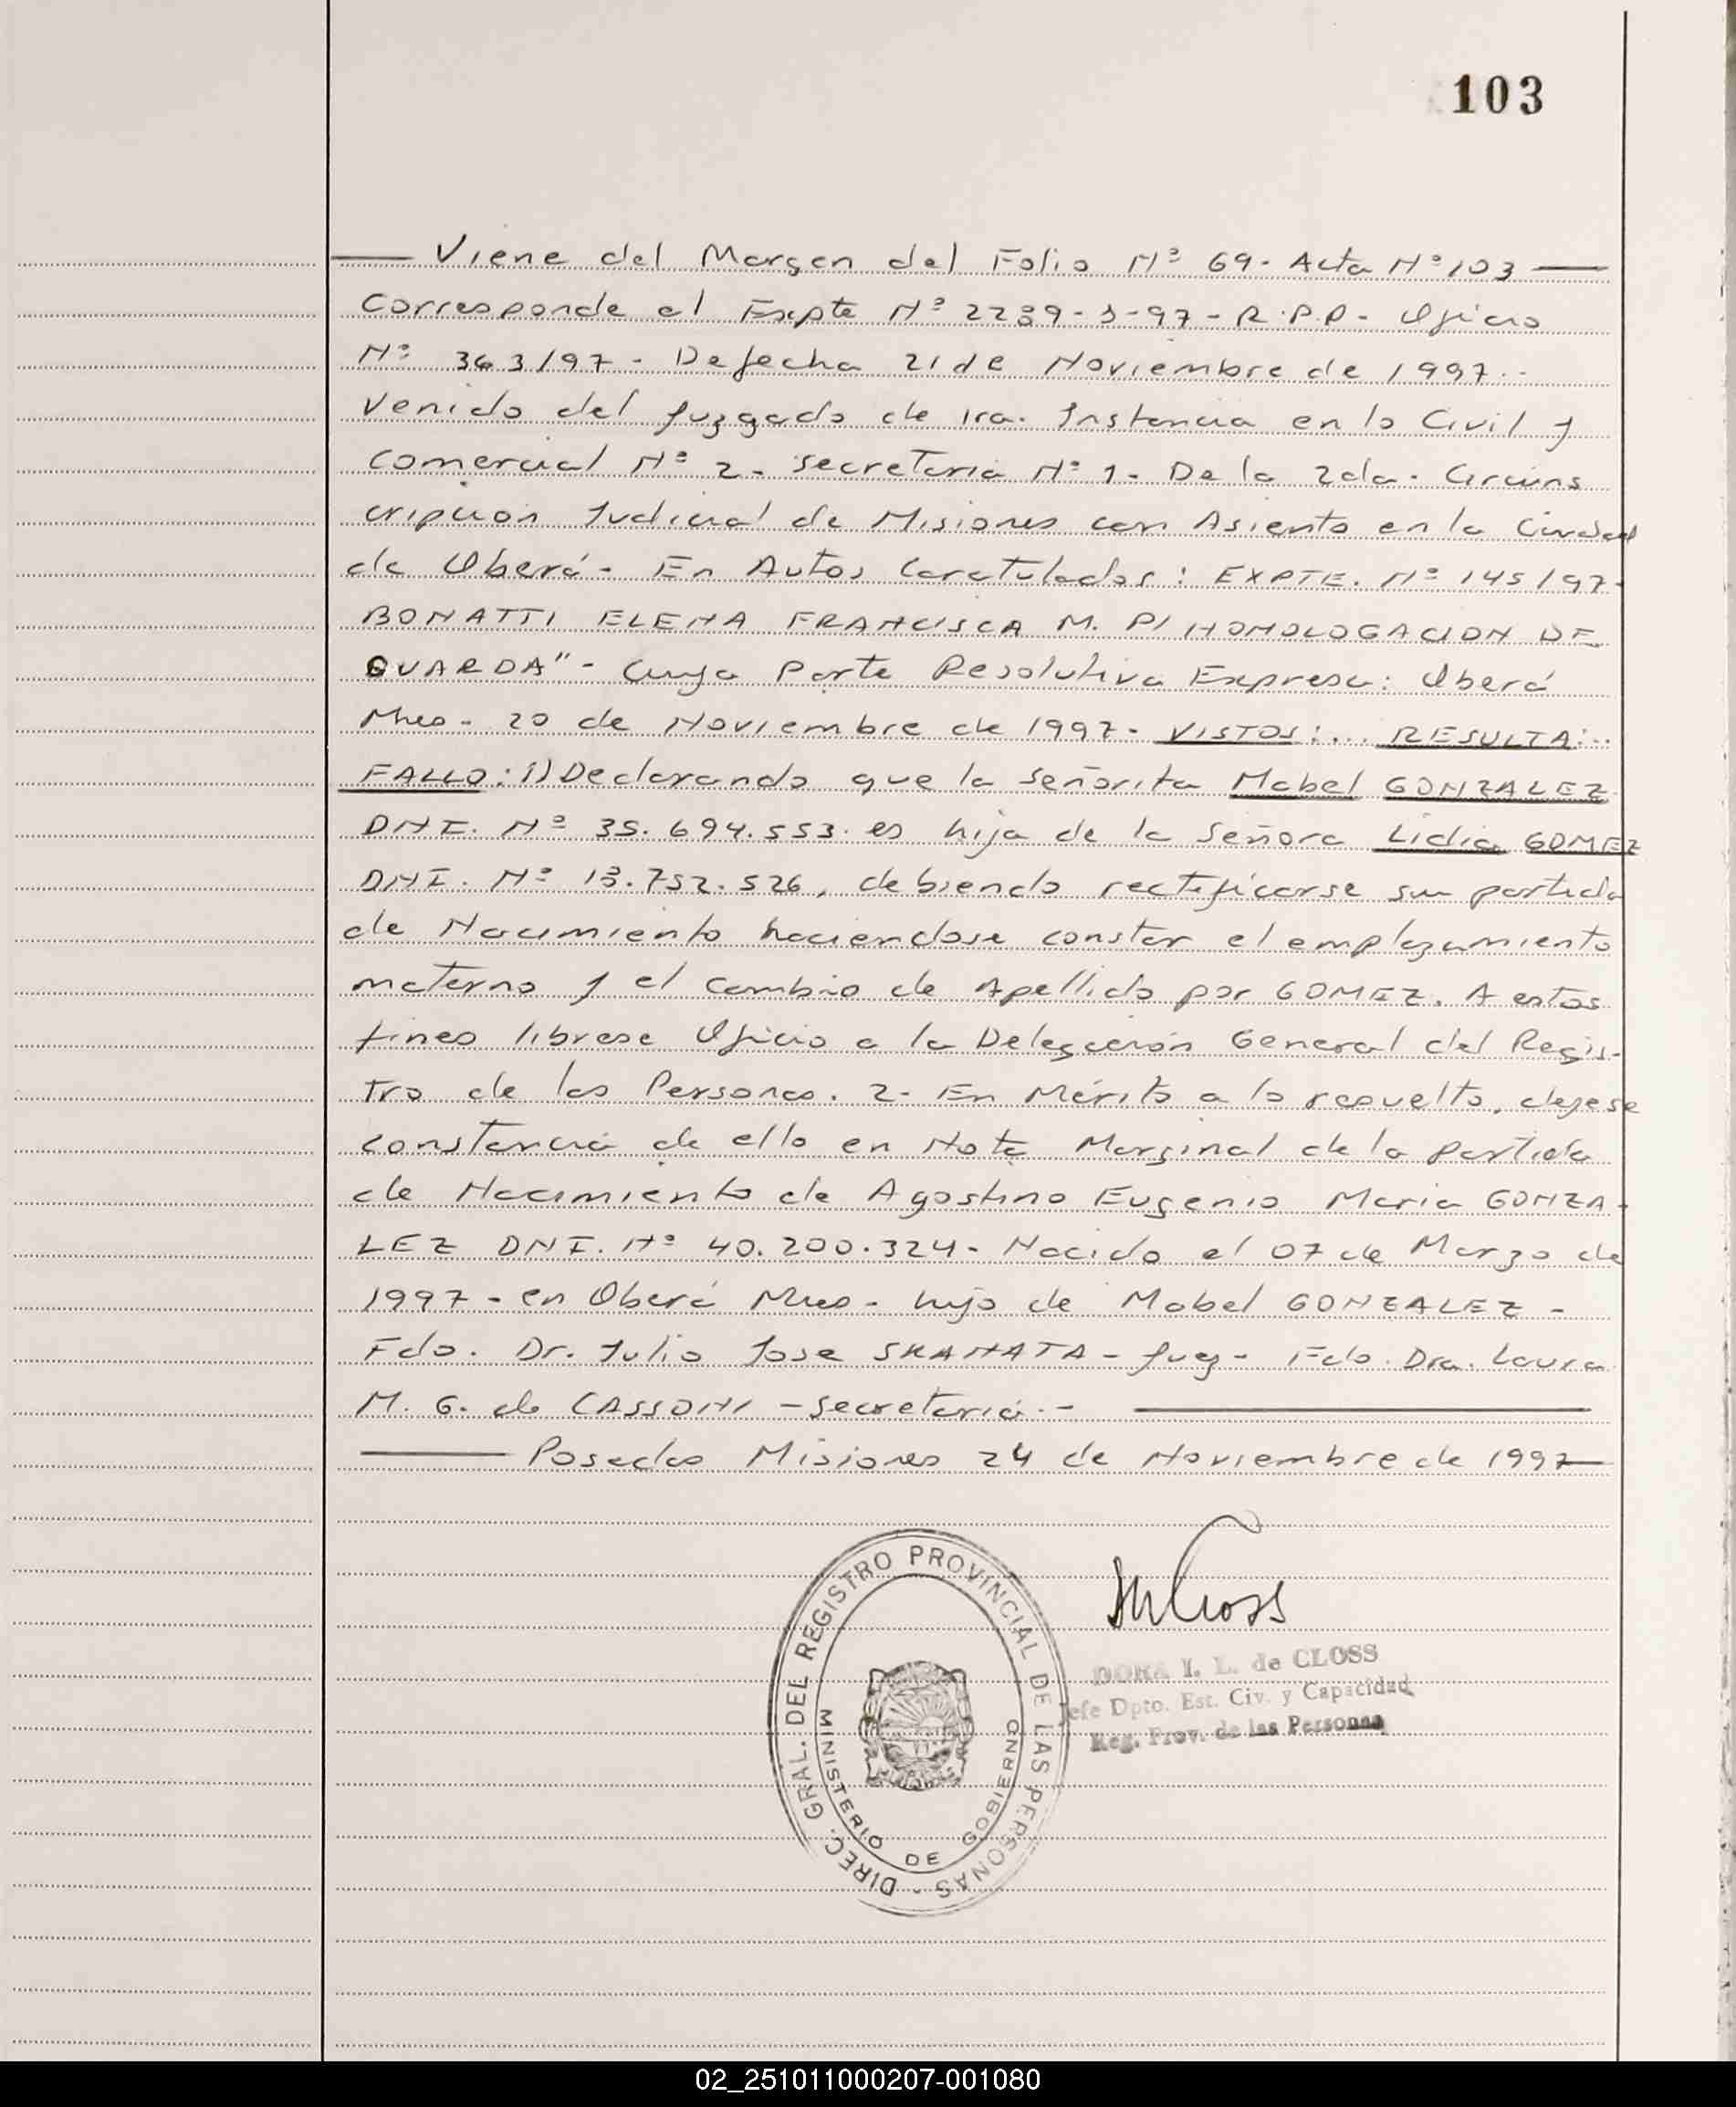 103
— Viene del Margen del Folio Nº 69- Acta Nº 103 —
Corresponde al Expte Nº 2239-3-97- R.P.P- Oficio
Nº 363/97- De fecha 21 de Noviembre de 1997..
Venido del Juzgado de 1ra. Instancia en lo Civil y
Comercial Nº 2- Secretaria Nº 1- De la 2da. Circuns
cripción Judicial de Misiones con Asiento en la Ciudad
de Oberá- En Autos Caratulados: EXPTE. Nº 145/97-
BONATTI ELENA FRANCISCA M. P/ HOMOLOGACION DE
GUARDA"- Cuya Parte Resolutiva Expresa: Oberá
Mnes- 20 de Noviembre de 1997- VISTOS:... RESULTA:..
FALLO: 1) Declarando que la señorita Mabel GONZALEZ
DNI. Nº 35.694.553. es hija de la Señora Lidia GOMEZ
DNI. Nº 13.752.526, debiendo rectificarse su partida
de Nacimiento haciendose constar el emplazamiento
materno y el cambio de Apellido por GOMEZ. A estos
fines librese Oficio a la Delegación General del Regis-
tro de las Personas. 2- En Mérito a lo resuelto, dejese
constancia de ello en Nota Marginal de la Partida
de Nacimiento de Agostino Eugenio Maria GONZA-
LEZ DNI. Nº 40.200.324- Nacido el 07 de Marzo de
1997- en Oberá Mnes- hijo de Mabel GONZALEZ -
Fdo. Dr. Julio Jose SKANATA- Juez- Fdo. Dra. Laura
M. G. de CASSONI - Secretaria.- —
— Posadas Misiones 24 de Noviembre de 1997 —
DIREC. GRAL. DEL REGISTRO PROVINCIAL DE LAS PERSONAS -
MINISTERIO DE GOBIERNO
DORA I. L. de CLOSS
Jefe Dpto. Est. Civ. y Capacidad
Reg. Prov. de las Personas
02_251011000207-001080